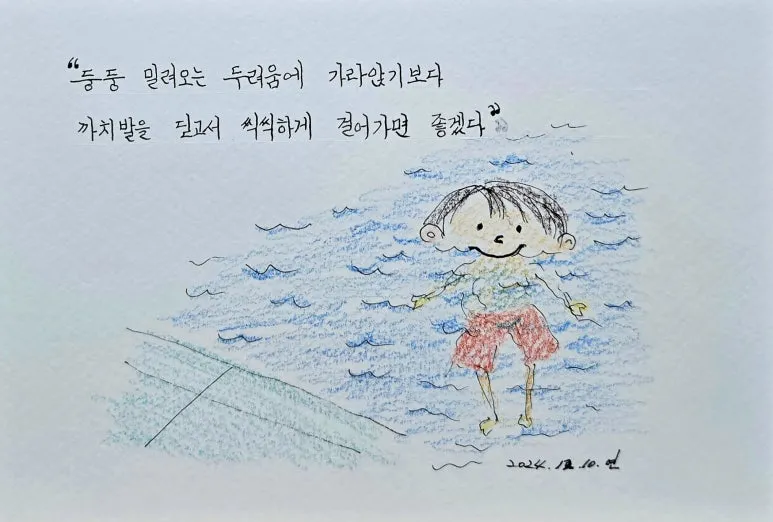 "둥둥 밀려오는 두려움에 가라앉기보다
까치발을 딛고서 씩씩하게 걸어가면 좋겠다"
2024. 12. 10. 연